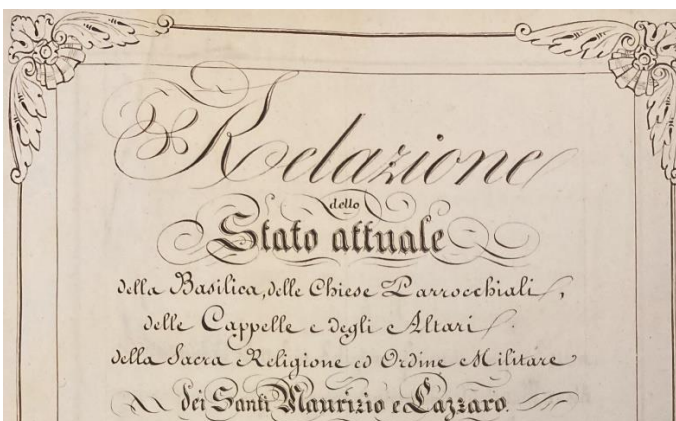 Relazione
dello
Stato attuale
della Basilica, delle Chiese Parrocchiali,
delle Cappelle e degli Altari.
della Sacra Religione ed Ordine Militare
dei Santi Maurizio e Lazzaro.